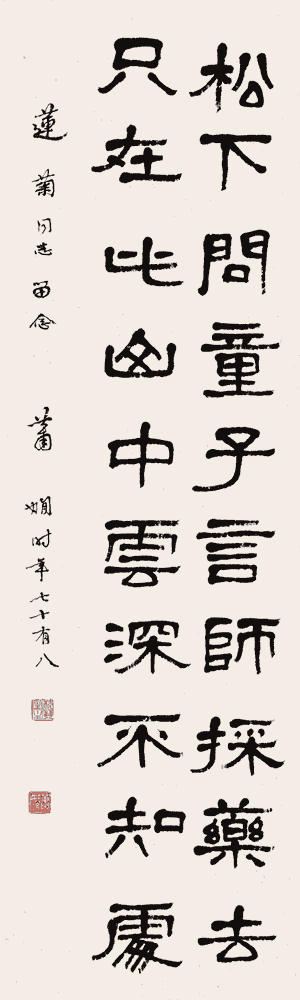 松下問童子言師採藥去
只在此山中雲深不知處
蓮菊同志留念 蕭嫻时年七十有八